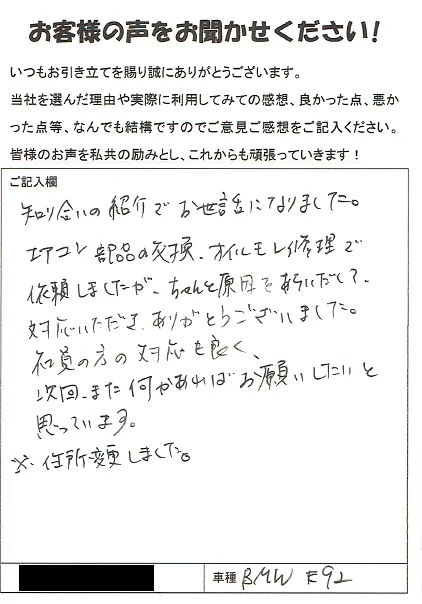 お客様の声をお聞かせください!
いつもお引き立てを賜り誠にありがとうございます。
当社を選んだ理由や実際に利用してみての感想、良かった点、悪か
った点等、なんでも結構ですのでご意見ご感想をご記入ください。
皆様のお声を私共の励みとし、これからも頑張っていきます!
ご記入欄
知り合いの紹介でお世話になりました。
エアコン部品の交換、オイルモレ修理で
依頼しましたが、ちゃんと原因を
対応いただき、ありがとうございました。
社員の方の対応も良く、
次回、また何かあればお願いしたいと
思っています。
※住所変更しました。
車種 BMW E92